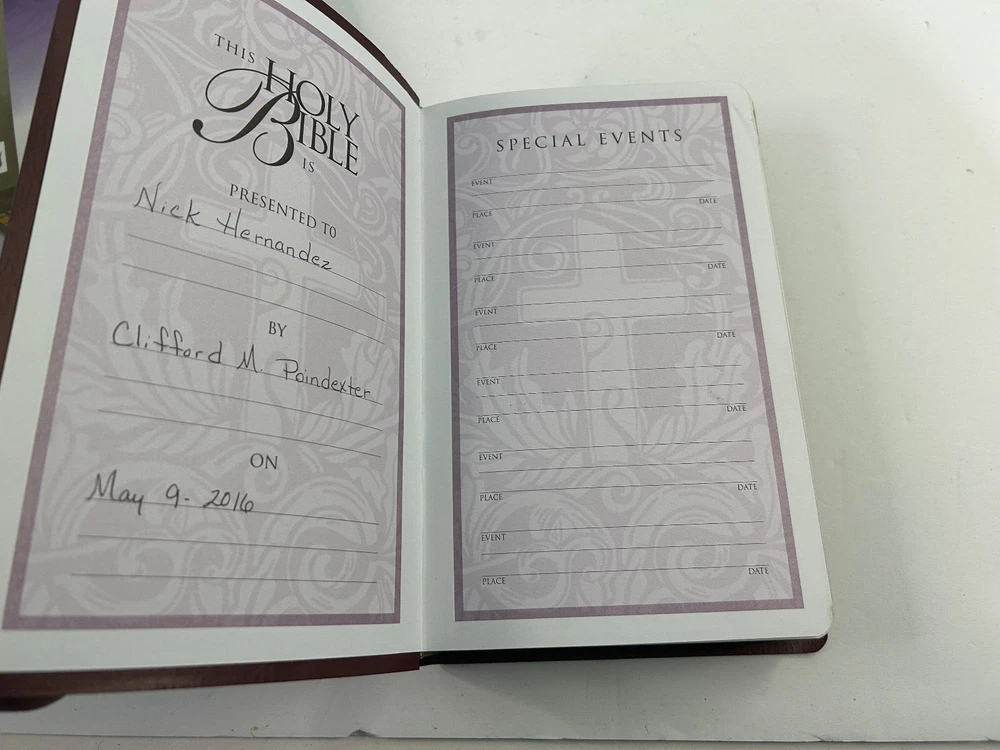 THIS
HOLY
BIBLE
IS
PRESENTED TO
Nick Hernandez
BY
Clifford M. Poindexter
ON
May 9- 2016
SPECIAL EVENTS
EVENT
PLACE DATE
EVENT
PLACE DATE
EVENT
PLACE DATE
EVENT
PLACE DATE
EVENT
PLACE DATE
EVENT
PLACE DATE